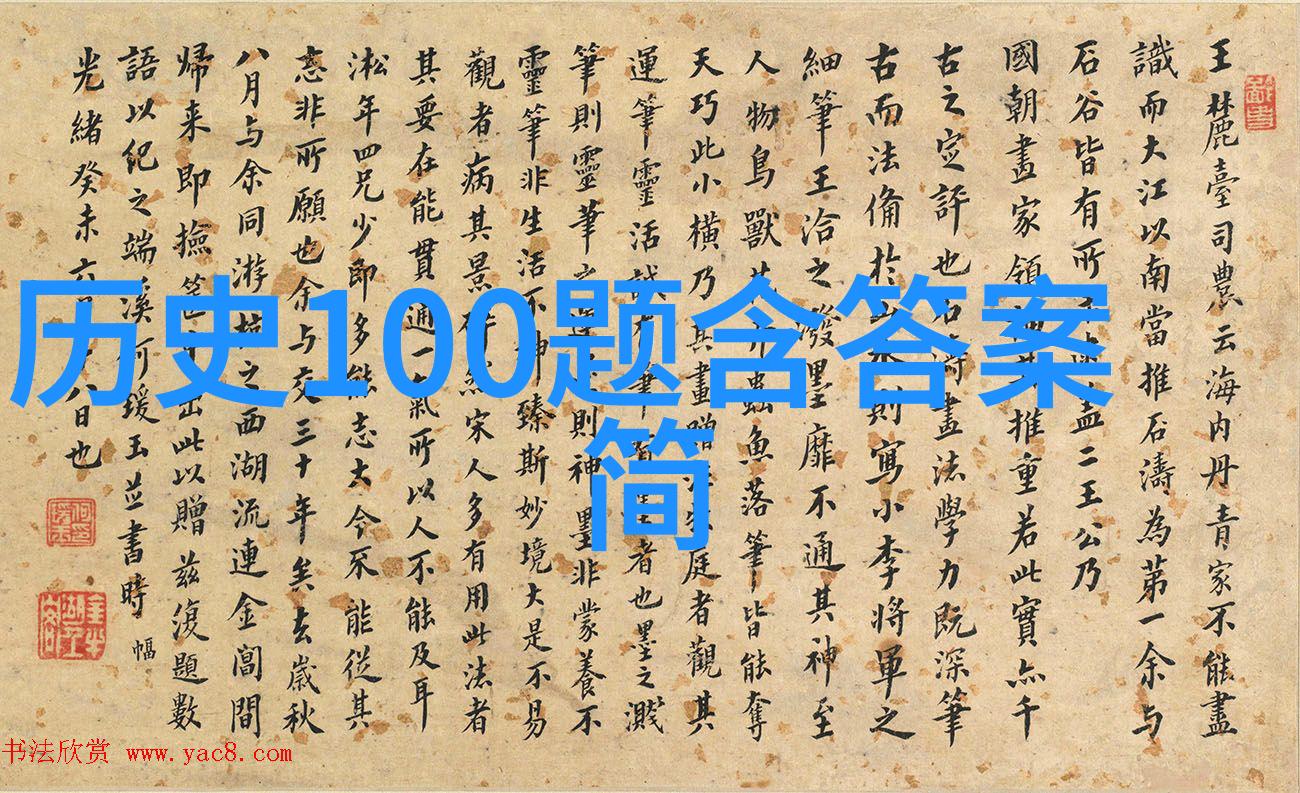 王麓臺司農云海内丹青家不能盡
識而大江以南當推石濤為第一余与
石谷皆有所
二王公乃
國朝畫家領
推重若此實亦千
古之定評也石濤畫法學力既深筆
古而法備於
則寫小李將軍之
細筆王洽之潑墨靡不通其神至
人物鳥獸花卉蟲魚落筆皆能奪
天巧此小橫乃其畫贈
庭者觀其
運筆靈活
者也墨之濺
筆則靈筆
則神墨非蒙養不
靈筆非生活不神
臻斯妙境大是不易
觀者病其景
宋人多有用此法者
其要在能貫通一氣所以人不能及耳
淞年四兄少即多能志古今不能從其
志非所願也余与交三十年矣去歲秋
八月与余同游杭之西湖流連金閶間
歸来即撿
出此以贈兹復題數
語以紀之端溪何瑗玉並書時
光緒癸未六月
八日也
幅
历史100题含答案
简
书法欣赏 www.yac8.com